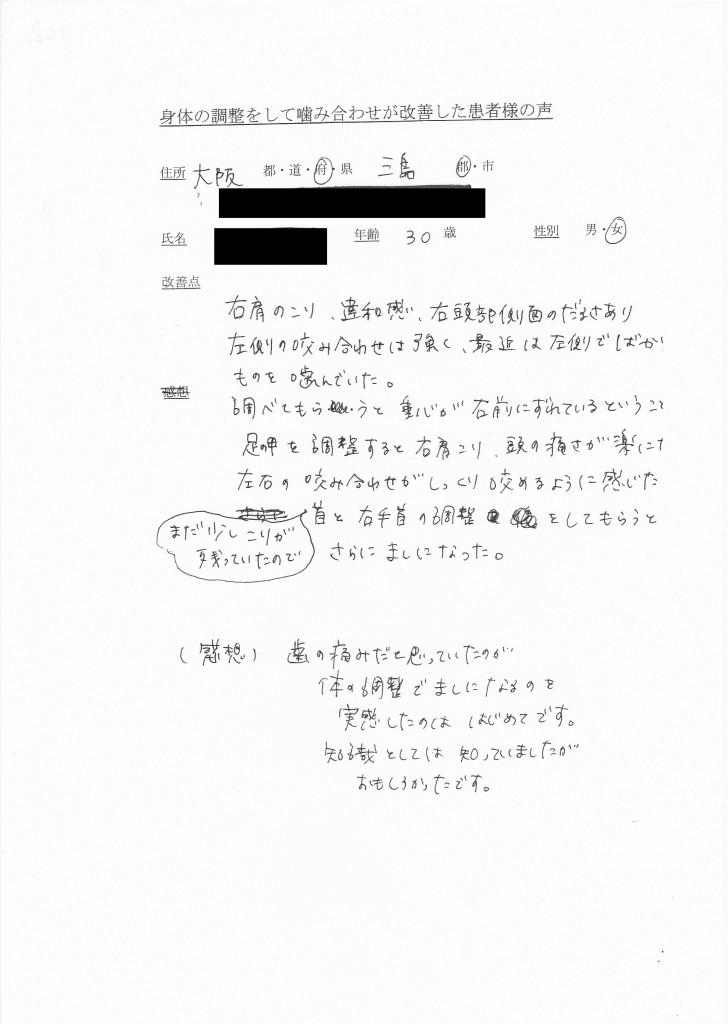 身体の調整をして噛み合わせが改善した患者様の声
住所 大阪 都・道・府・県 三島 郡・市
氏名 年齢 30 歳 性別 男・女
改善点
右肩のこり、違和感、右頭部側面のだるさあり
左側の咬み合わせは強く、最近は左側でばか
ものを噛んでいた。
感想
調べてもらうと重心が右前にずれているというこ
足の甲を調整すると右肩こり、頭の痛さが楽に
左右の咬み合わせがしっくり咬めるように感じた
まだ少しこりが
残っていたので
首と右手首の調整をしてもらうと
さらにましになった。
(感想) 歯の痛みだと思っていたのが
体の調整でましになるのを
実感したのははじめてです。
知識としては知っていましたが
おもしろかったです。